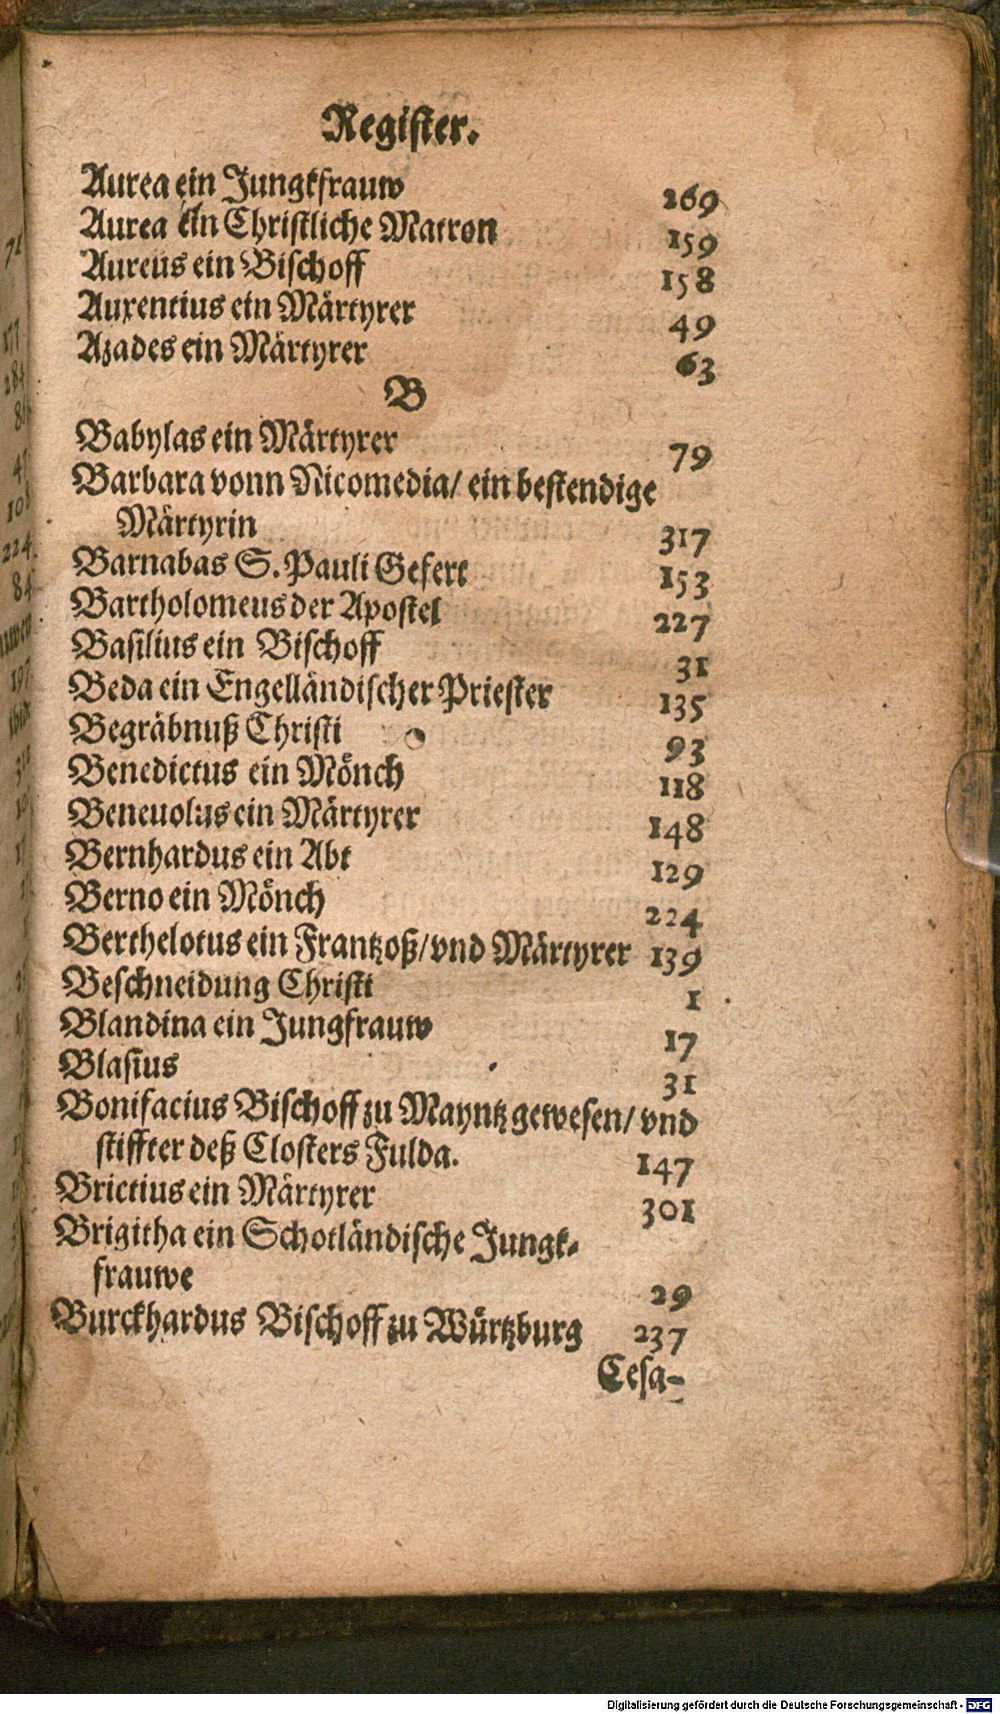 Register.
Aurea ein Jungkfrauw 269
Aurea ein Christliche Matron 159
Aureus ein Bischoff 158
Auxentius ein Märtyrer 49
Azades ein Märtyrer 63
B
Babylas ein Märtyrer 79
Barbara vonn Nicomedia/ ein bestendige
Märtyrin 317
Barnabas S. Pauli Gefert 153
Bartholomeus der Apostel 227
Basilius ein Bischoff 31
Beda ein Engelländischer Priester 135
Begräbnuß Christi 93
Benedictus ein Mönch 118
Beneuolus ein Märtyrer 148
Bernhardus ein Abt 129
Berno ein Mönch 224
Berthelotus ein Frantzoß/ vnd Märtyrer 139
Beschneidung Christi 1
Blandina ein Jungfrauw 17
Blasius 31
Bonifacius Bischoff zu Mayntz gewesen/ vnd
stiffter deß Closters Fulda. 147
Brictius ein Märtyrer 301
Brigitha ein Schotländische Jungk-
frauwe 29
Burckhardus Bischoff zu Würtzburg 237
Cesa-
Digitalisierung gefördert durch die Deutsche Forschungsgemeinschaft - DFG